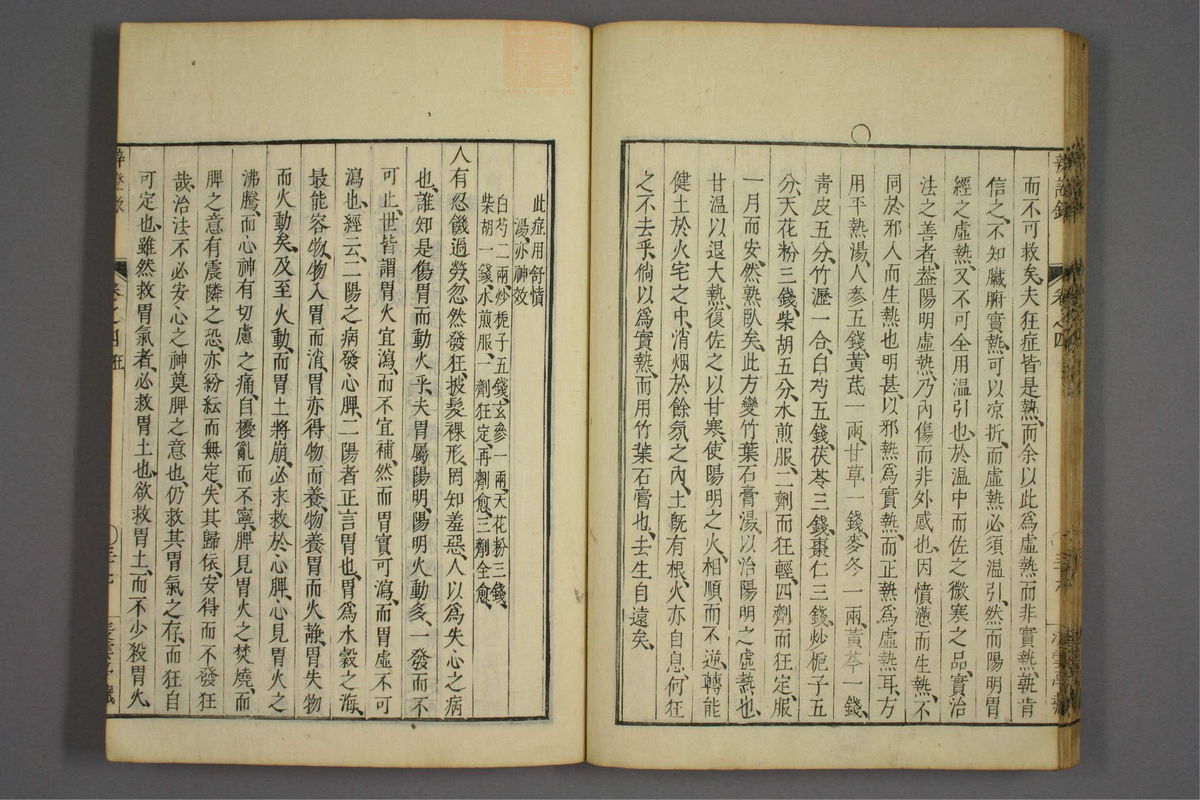 而不可救矣、夫狂症皆是熱、而余以此爲虛熱而非實熱、孰肯
信之、不知臟腑實熱、可以凉折、而虛熱必須溫引、然而陽明胃
經之虛熱、又不可全用溫引也、於溫中而佐之微寒之品、實治
法之善者、葢陽明虛熱、乃內傷而非外感也、因憤懣而生熱、不
同於邪人而生熱也明甚、以邪熱爲實熱、而正熱爲虛熱耳、方
用平熱湯、人參五錢、黃芪一兩、甘草一錢、麥冬一兩、黃芩一錢、
靑皮五分、竹瀝一合、白芍五錢、茯苓三錢、棗仁三錢、炒梔子五
分、天花粉三錢、柴胡五分、水煎服、二劑而狂輕、四劑而狂定、服
一月而安、然熟臥矣、此方變竹葉石膏湯、以治陽明之虛熱也、
甘溫以退大熱、復佐之以甘寒、使陽明之火、相順而不逆、轉能
健土於火宅之中、消烟於餘氛之內、土旣有根、火亦自息、何狂
之不去乎、倘以爲實熱、而用竹葉石膏也、去生自遠矣、
此症用舒憤
湯、亦神效
白芍二兩、炒梔子五錢、玄參一兩、天花粉三錢、
柴胡一錢、水煎服、一劑狂定、再劑愈、三劑全愈、
人有忍饑過勞、忽然發狂、披髮裸形、罔知羞惡、人以爲失心之病
也、誰知是傷胃而動火乎、夫胃屬陽明、陽明火動多、一發而不
可止、世皆謂胃火宜瀉、而不宜補、然而胃實可瀉、而胃虛不可
瀉也、經云、二陽之病發心脾、二陽者正言胃也、胃爲水穀之海、
最能容物、物入胃而消、胃亦得物而養、物養胃而火靜、胃失物
而火動矣、及至火動、而胃土將崩、必求救於心脾、心見胃火之
沸騰、而心神有切慮之痛、自擾亂而不寧、脾見胃火之焚燒、而
脾之意有震隣之恐、亦紛紜而無定、失其歸依、安得而不發狂
哉、治法不必安心之神奠脾之意也、仍救其胃氣之存、而狂自
可定也、雖然救胃氣者、必救胃土也、欲救胃土、而不少殺胃火、